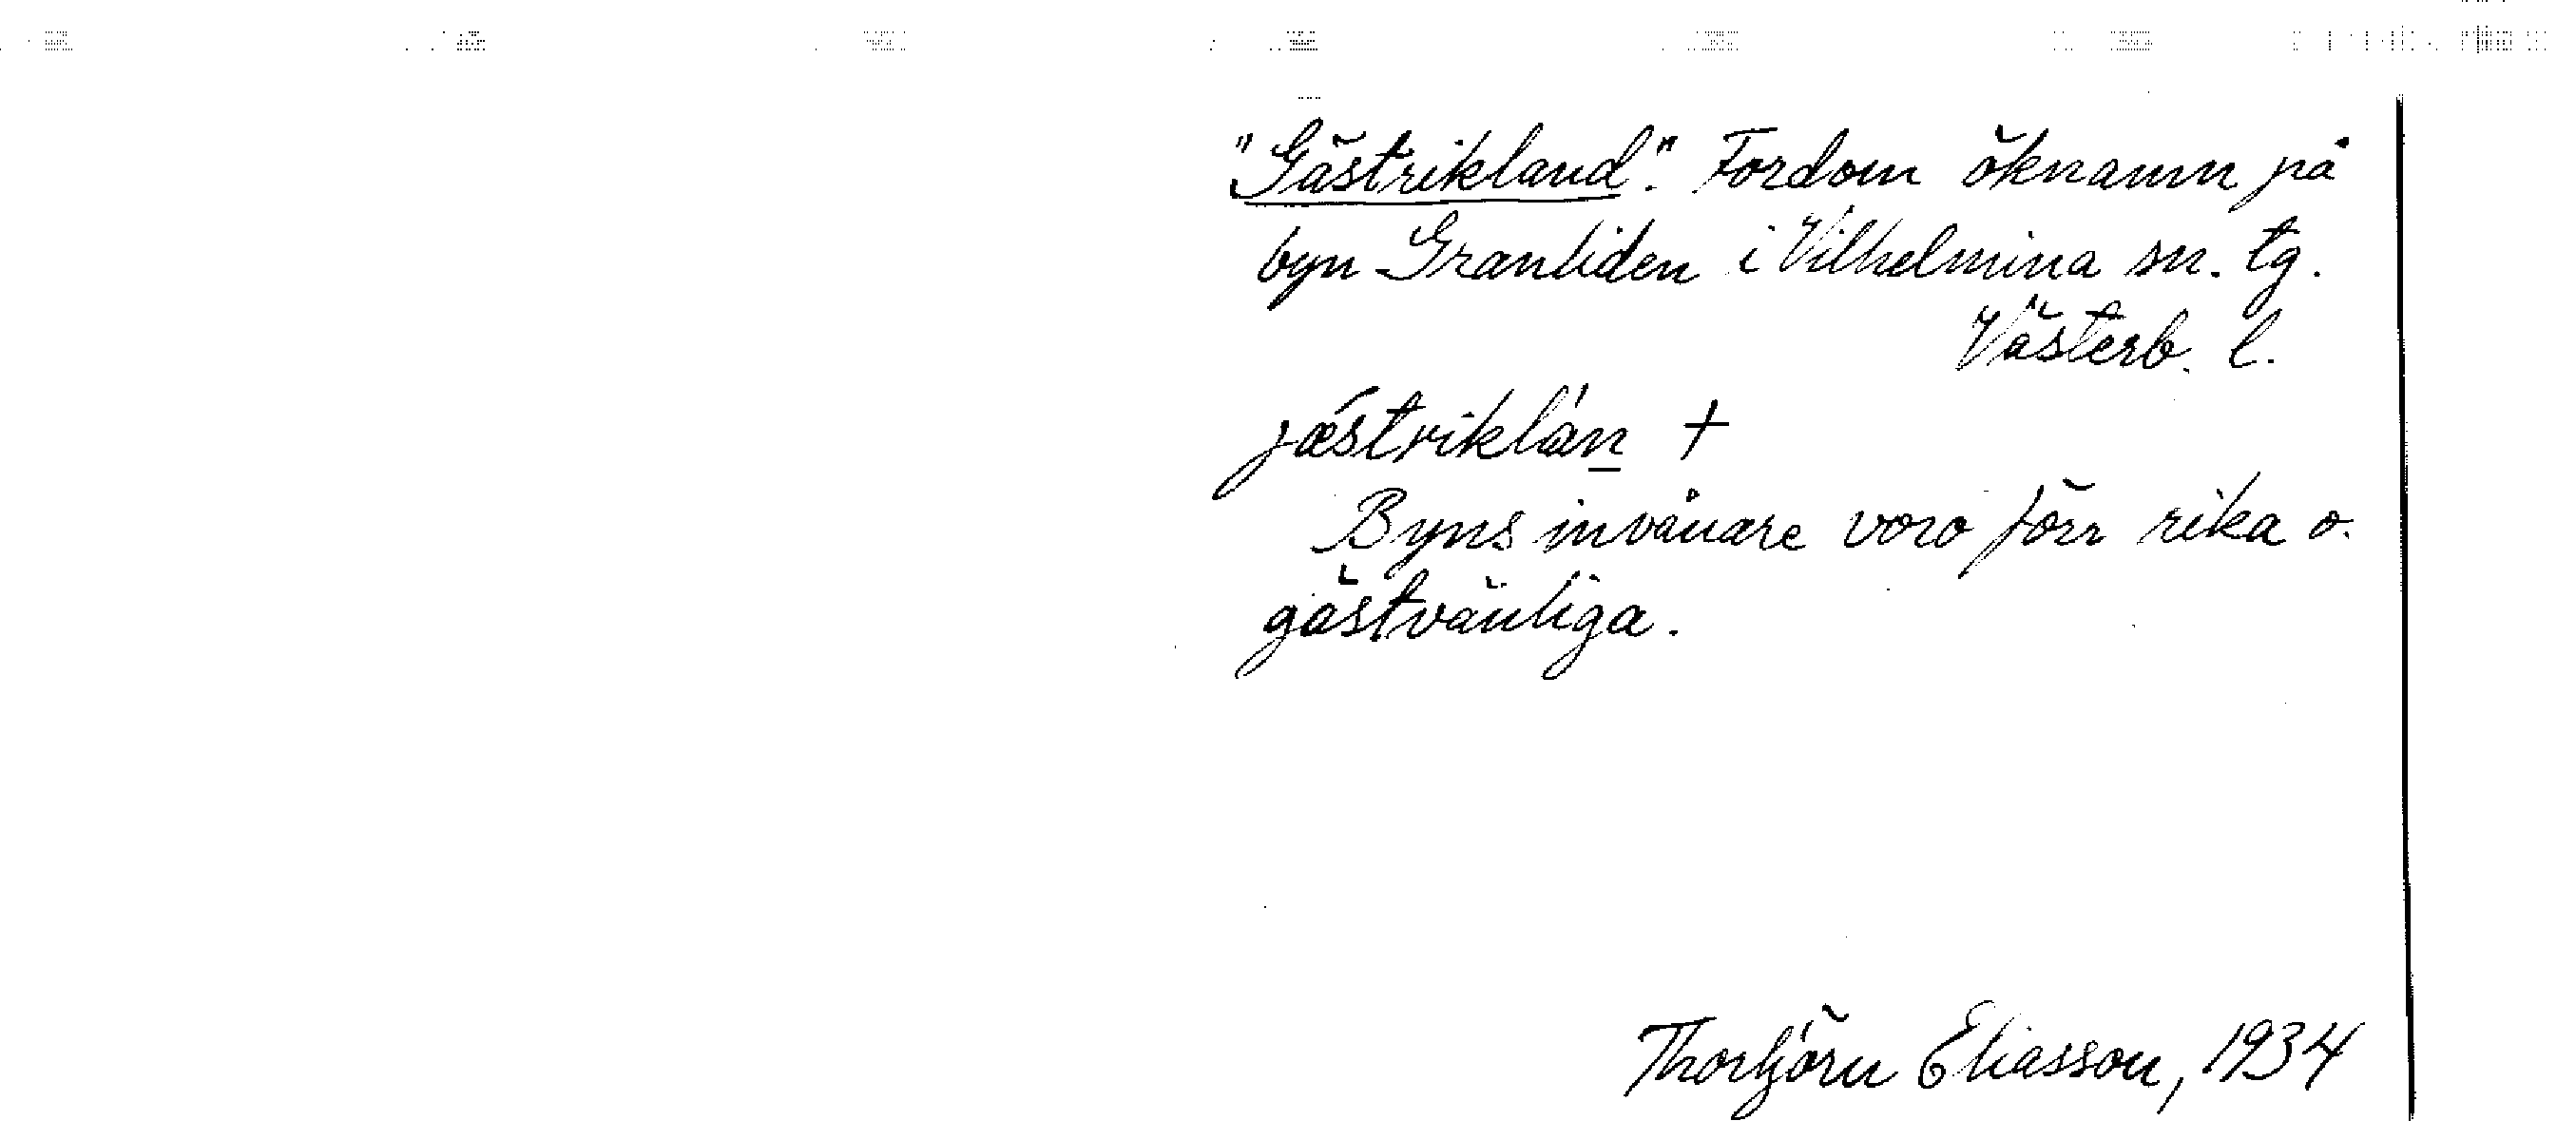 "Gästrikland". Fordom öknamn på
byn Granliden i Vilhelmina sn. tg.
Västerb. l.
jæ´striklàn̲ +
Byns invånare voro förr rika o.
gästvänliga.
Thorbjörn Eliasson, 1934